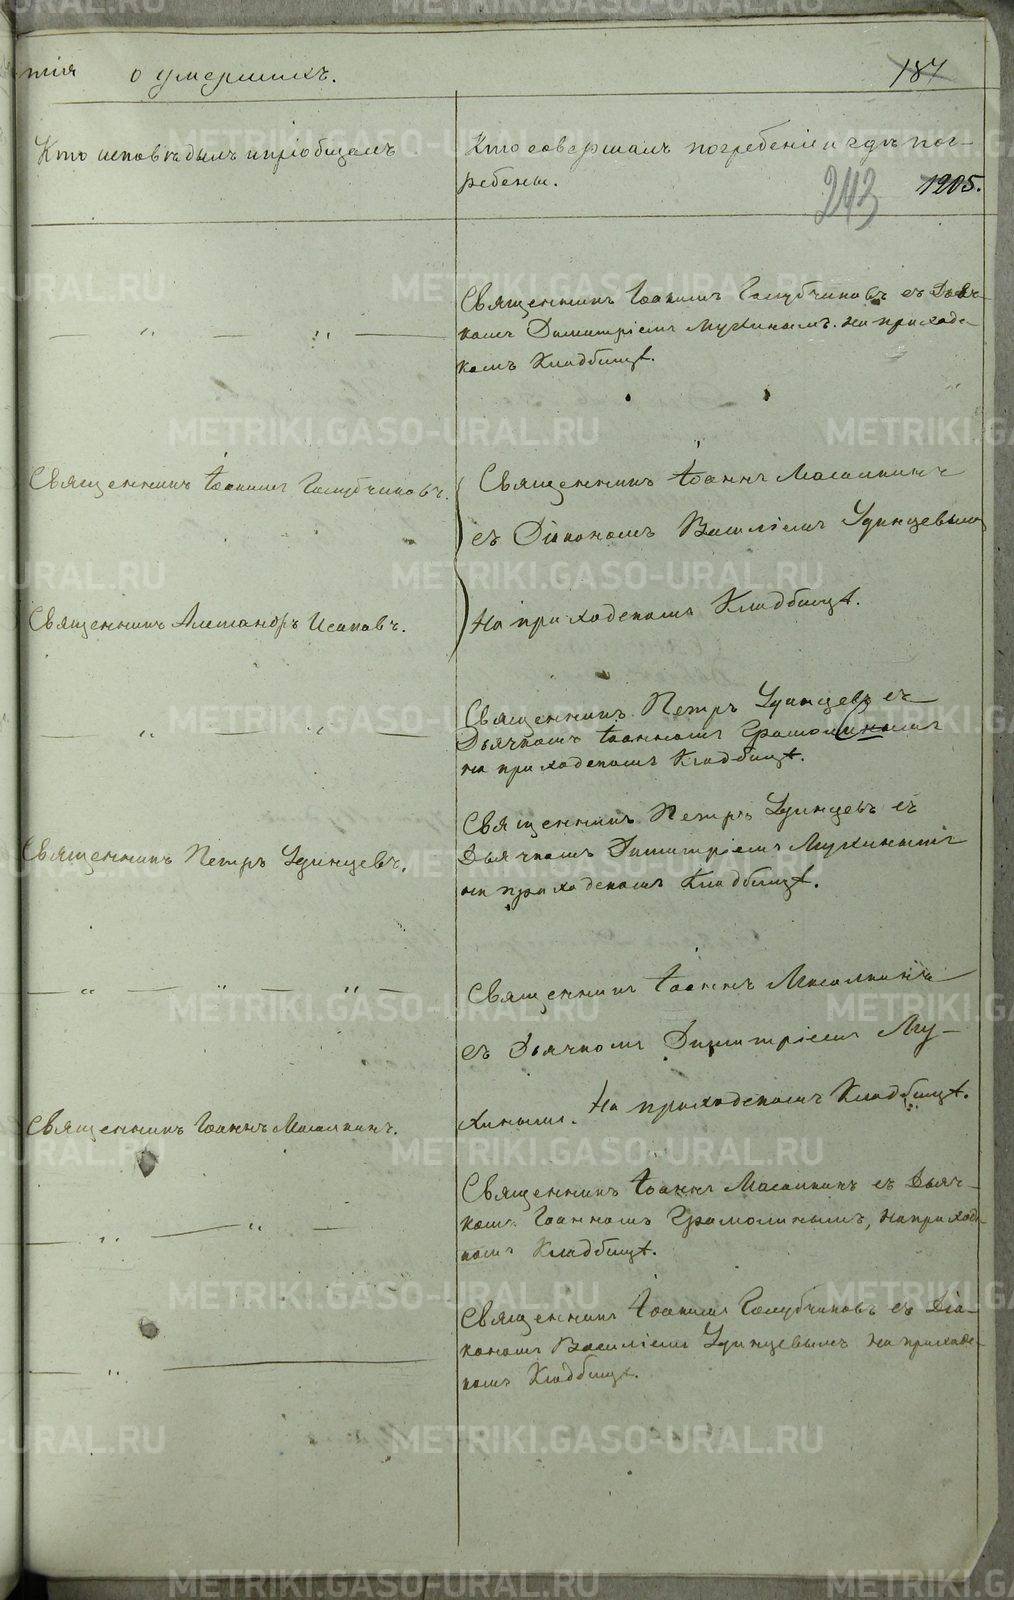 тiя о умершихъ. 187
Кто исповѣдывалъ и прiобщалъ
Кто совершалъ погребенiе и гдѣ пог-
ребены. 1205.
243
Священникъ Iоакимъ Голубчиковъ съ Дьяч-
комъ Димитрiемъ Мухинымъ. На приходс-
комъ Кладбищѣ.
Священникъ Iоакимъ Голубчиковъ.
Священникъ Iоаннъ Масалкинъ
съ Дiакономъ Василiемъ Удинцевымъ
На приходскомъ Кладбищѣ.
Священникъ Александръ Исаковъ.
Священникъ Петръ Удинцевъ съ
Дьячкомъ Iоанномъ Грамолинымъ
на приходскомъ Кладбищѣ.
Священникъ Петръ Удинцевъ.
Священникъ Петръ Удинцевъ съ
Дьячкомъ Димитрiемъ Мухинымъ
на приходскомъ Кладбищѣ.
Священникъ Iоаннъ Масалкинъ
съ Дьячкомъ Димитрiемъ Му-
хинымъ. На приходскомъ Кладбищѣ.
Священникъ Iоаннъ Масалкинъ.
Священникъ Iоаннъ Масалкинъ съ Дьяч-
комъ Iоанномъ Грамолинымъ, на приходс-
комъ Кладбищѣ.
Священникъ Iоакимъ Голубчиковъ съ Дiа-
кономъ Василiемъ Удинцевымъ на приходс-
комъ Кладбищѣ.
METRIKI.GASO-URAL.RU